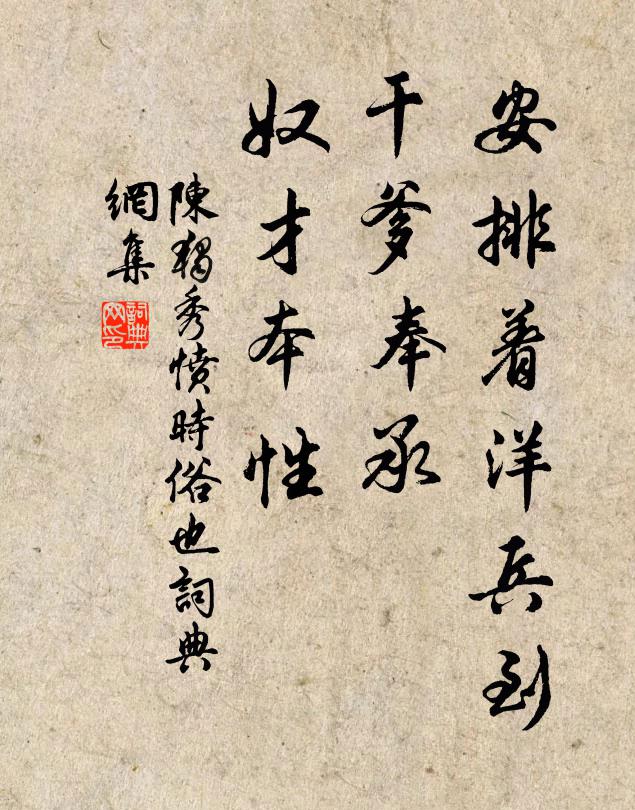 安排着洋兵到
干爹奉承
奴才本性
陳獨秀憤時俗也詞典
網集
詞典
网印